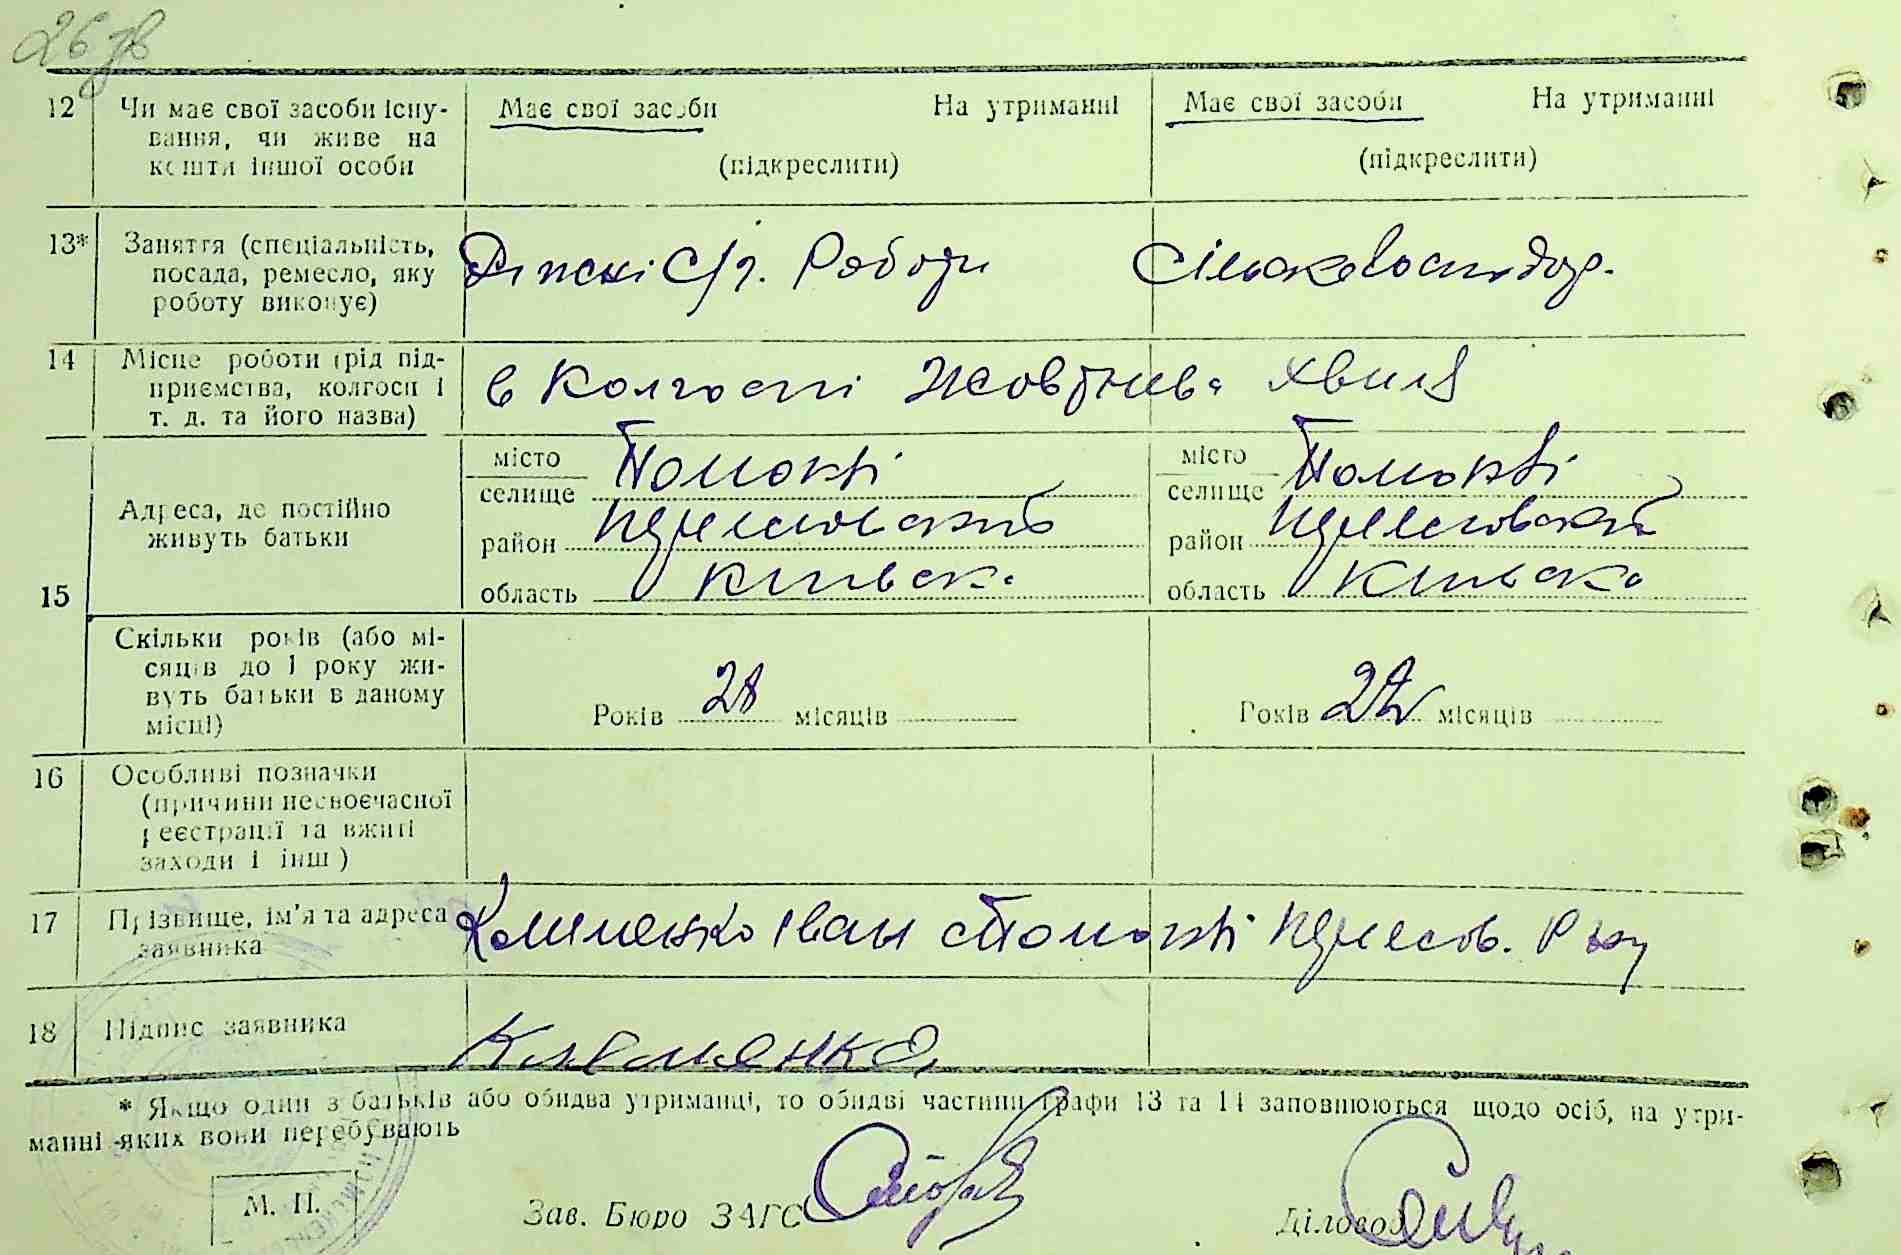 26 зв
12 Чи має свої засоби існу- Має свої засоби На утриманні Має свої засоби На утриманні
вання, чи живе на
кошти іншої особи (підкреслити) (підкреслити)
13* Заняття (спеціальність,
посада, ремесло, яку С/г. Роботи
роботу виконує)
14 Місце роботи (рід під-
приємства, колгосп і в колгоспі Жовтнева хвиля
т. д. та його назва)
15 Адреса, де постійно
живуть батьки
місто Помоклі місто Помоклі
селище селище
район район
область Київська область Київська
Скільки років (або мі-
сяців до 1 року жи-
вуть батьки в даному Років 28 місяців Років місяців
місці)
16 Особливі позначки
(причини несвоєчасної
реєстрації та вжиті
заходи і інш)
17 Прізвище, ім'я та адреса Клименко Іван с Помоклі
заявника
18 Підпис заявника Клеменко
* Якщо один з батьків або обидва утриманці, то обидві частини графи 13 та 14 заповнюються щодо осіб, на утри-
манні яких вони перебувають
М. П. Зав. Бюро ЗАГС Діловод